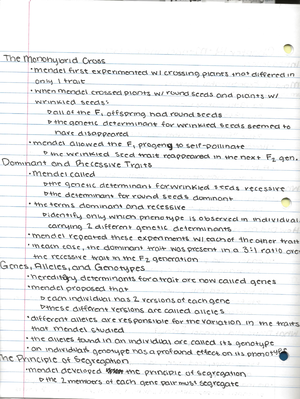 The Monohybrid Cross
• mendel first experimented w/ crossing plants that differed in
only 1 trait
• when mendel crossed plants w/ round seeds and plants w/
wrinkled seeds:
▷ all of the F₁ offspring had round seeds
▷ the genetic determinant for wrinkled seeds seemed to
have disappeared
• mendel allowed the F₁ progeny to self-pollinate
▷ the wrinkled seed trait reappeared in the next F₂ gen.
Dominant and Recessive Traits
• mendel called
▷ the genetic determinant for wrinkled seeds recessive
▷ the determinant for round seeds dominant
• the terms dominant and recessive
▷ identify only which phenotype is observed in individual
carrying 2 different genetic determinants
• mendel repeated these experiments w/ each of the other trait
• in each case, the dominant trait was present in a 3:1 ratio over
the recessive trait in the F₂ generation
Genes, Alleles, and Genotypes
• hereditary determinants for a trait are now called genes
• mendel proposed that
▷ each individual has 2 versions of each gene
▷ these different versions are called alleles
• different alleles are responsible for the variation in the traits
that mendel studied
• the alleles found in an individual are called its genotype
• an individual's genotype has a profound effect on its phenotype
The Principle of Segregation
• mendel developed the principle of segregation
▷ the 2 members of each gene pair must segregate